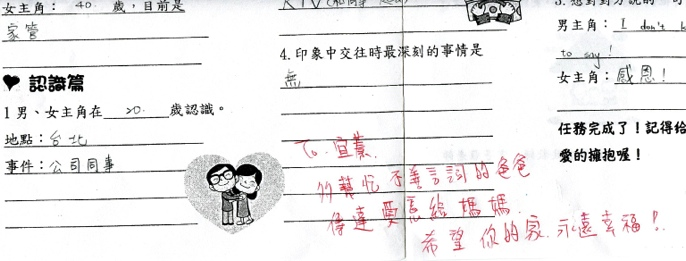 女主角：40.歲，目前是
家管
認識篇
1男、女主角在 20. 歲認識。
地點：台北
事件：公司同事
KTV
4.印象中交往時最深刻的事情是
無
To 宜蓁
幫忙不善言詞的爸爸
傳達愛意給媽媽.
希望你的家.永遠幸福!
男主角：I don't
to say!
女主角：感恩!
任務完成了！記得給
愛的擁抱喔！